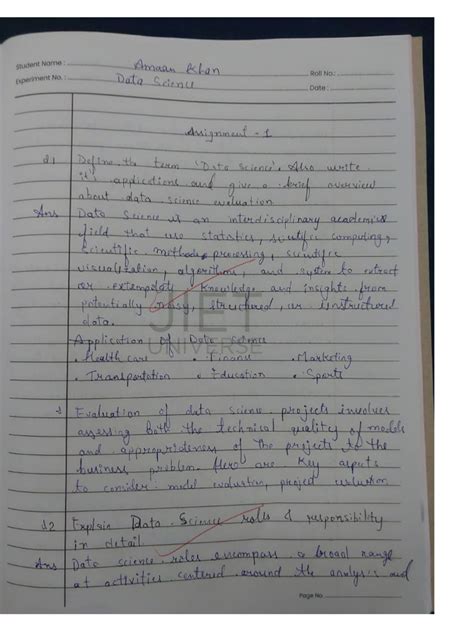 Student Name : Amaan Khan Roll No.:
Experiment No. : Data Science Date :
Assignment - 1
Q1 Define the term 'Data Science'. Also write
it's applications and give a brief overview
about data science evaluation
Ans Data Science is an interdisciplinary academic
field that use statistics, scientific computing,
scientific methods, processing, scientific
visualization, algorithms, and system to extract
or extrapolate knowledge and insights from
potentially noisy, structured, or unstructured
data.
JIET
UNIVERSE
Application of Data science
• Health care • Finance • Marketing
• Transportation • Education • Sports
Evaluation of data science projects involves
assessing both the technical quality of models
and appropriateness of the projects to the
business problem. Here are key aspects
to consider: model evaluation, project evaluation
Q2 Explain Data Science roles & responsibility
in detail
Ans Data science roles encompass a broad range
of activities centered around the analysis and
Page No.